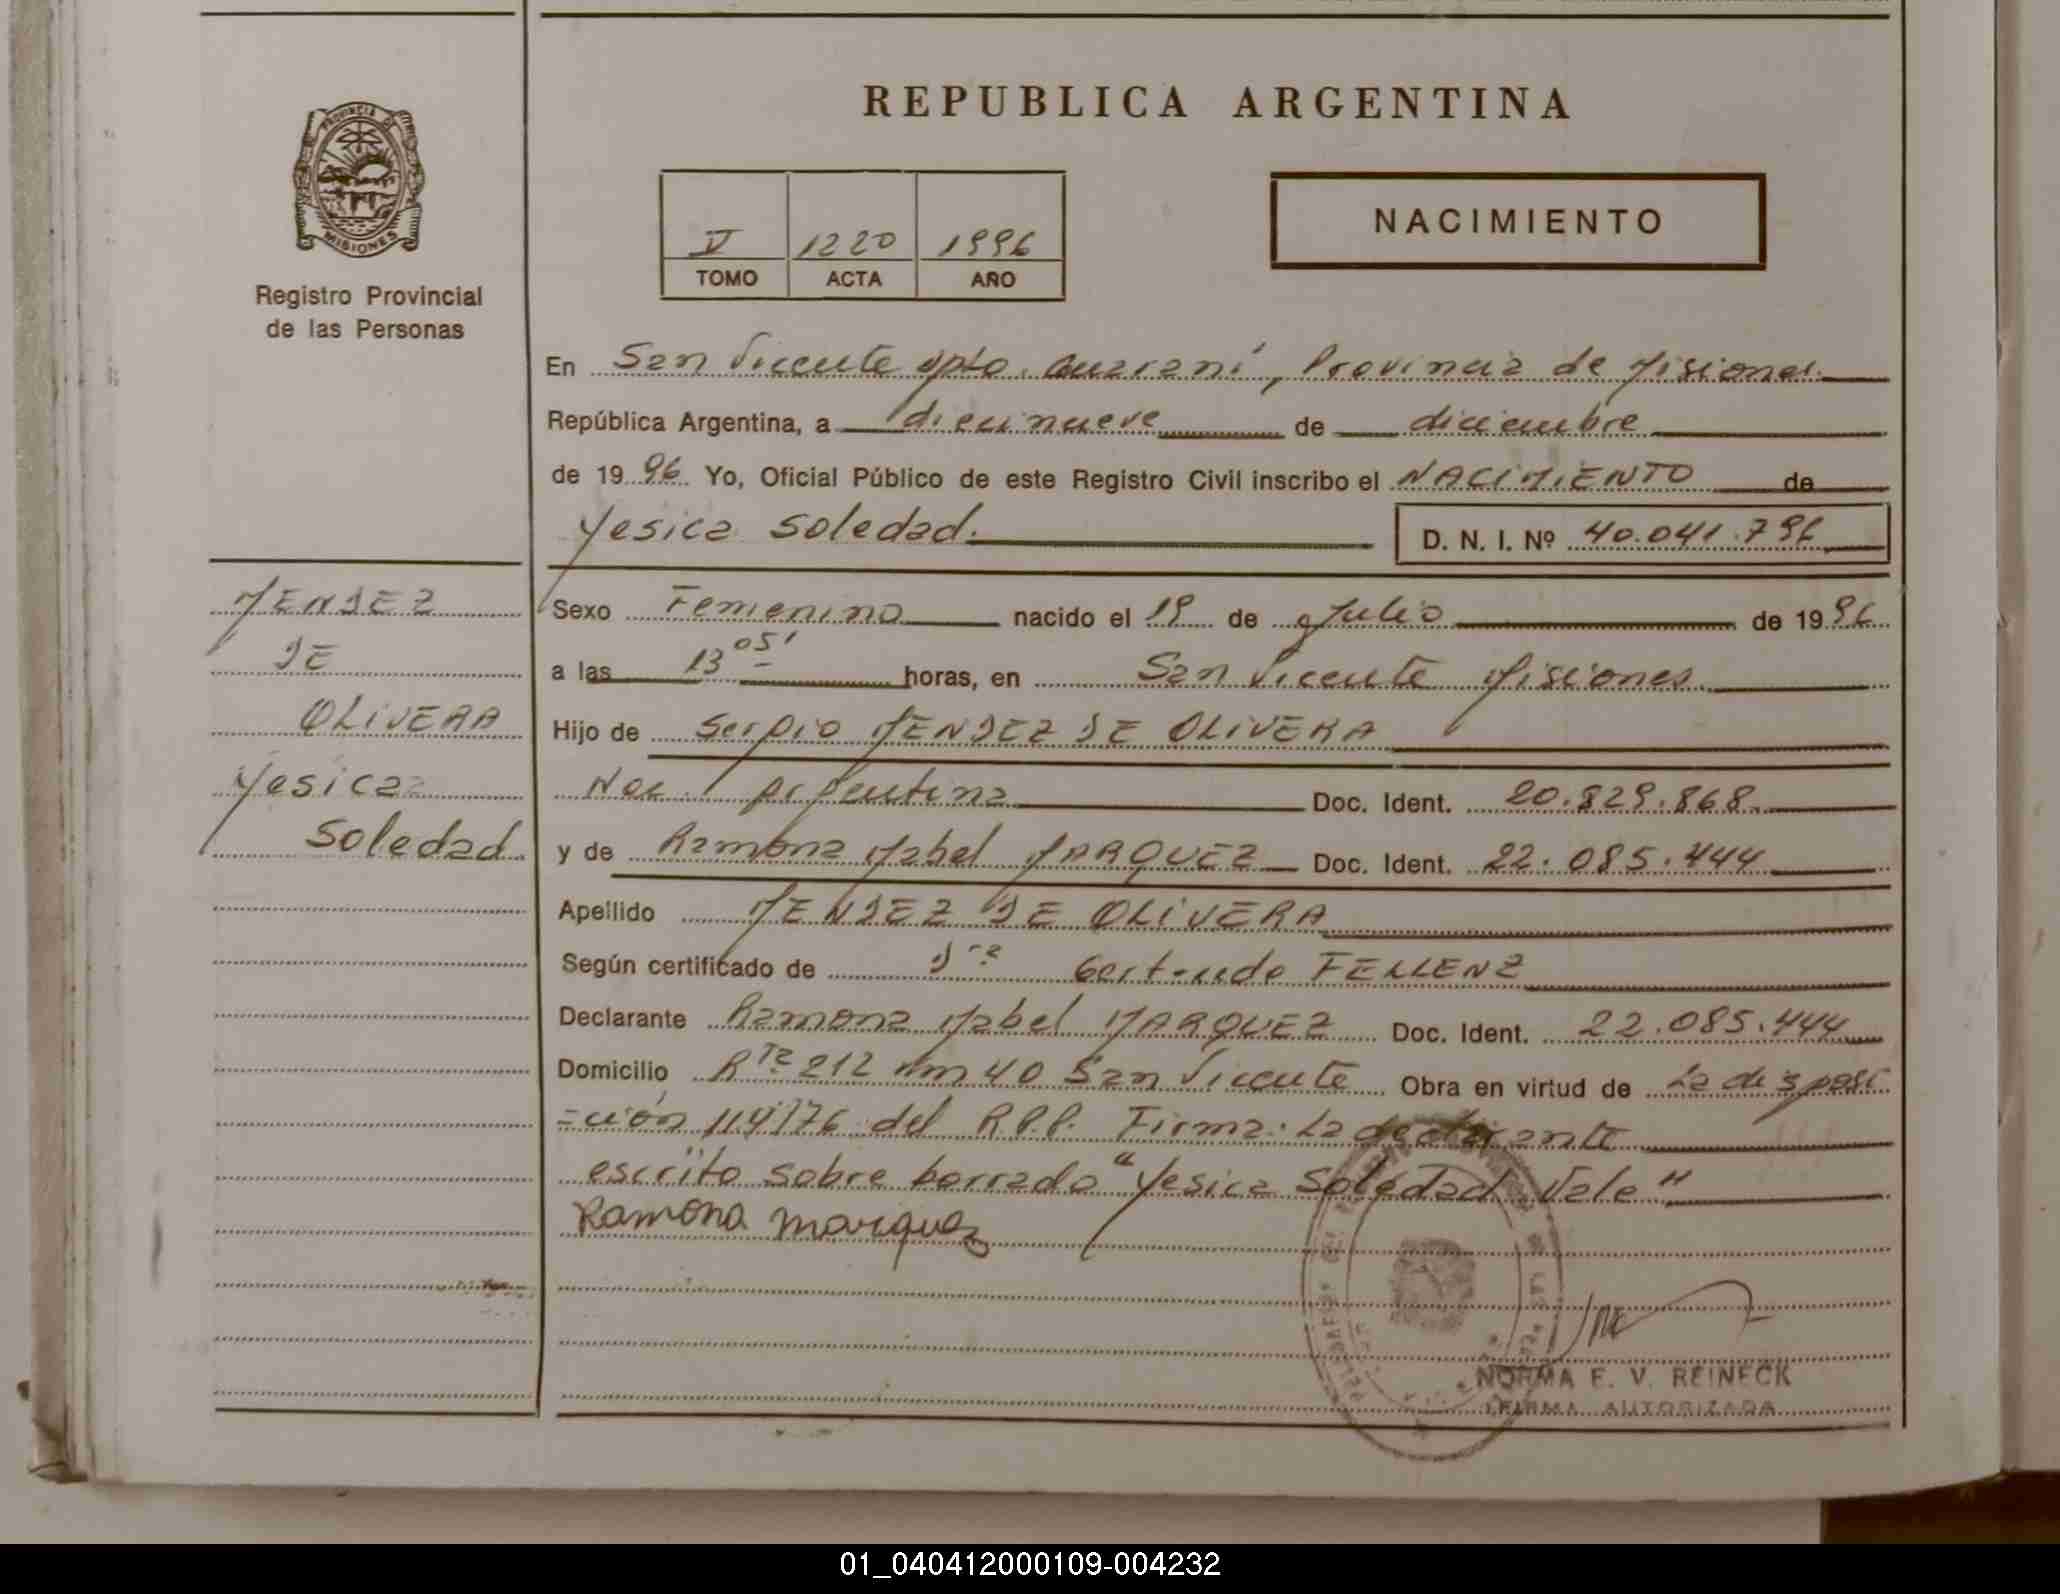 REPUBLICA ARGENTINA
PROVINCIA DE
MISIONES
Registro Provincial
de las Personas
V 1220 1996
TOMO ACTA AÑO
NACIMIENTO
En San Vicente Dpto. Guaraní, Provincia de Misiones.
República Argentina, a diecinueve de diciembre
de 1996 Yo, Oficial Público de este Registro Civil inscribo el NACIMIENTO de
Yesica Soledad.
D. N. I. Nº 40.041.796
MENDEZ
DE
OLIVERA
Yesica
Soledad
Sexo Femenino nacido el 19 de Julio de 1996
a las 13 05' horas, en San Vicente Misiones
Hijo de Sergio MENDEZ DE OLIVERA
Nac. Argentina Doc. Ident. 20.829.868
y de Ramona Mabel MARQUEZ Doc. Ident. 22.085.444
Apellido MENDEZ DE OLIVERA
Según certificado de Dra Gertrude FELLENZ
Declarante Ramona Mabel MARQUEZ Doc. Ident. 22.085.444
Domicilio Rta 212 Km 40 San Vicente Obra en virtud de La disposi
=ción 114/76 del R.P.P. Firma: La declarante
escrito sobre borrado "Yesica Soledad Vale"
Ramona Marquez
NORMA E. V. REINECK
FIRMA AUTORIZADA
01_040412000109-004232